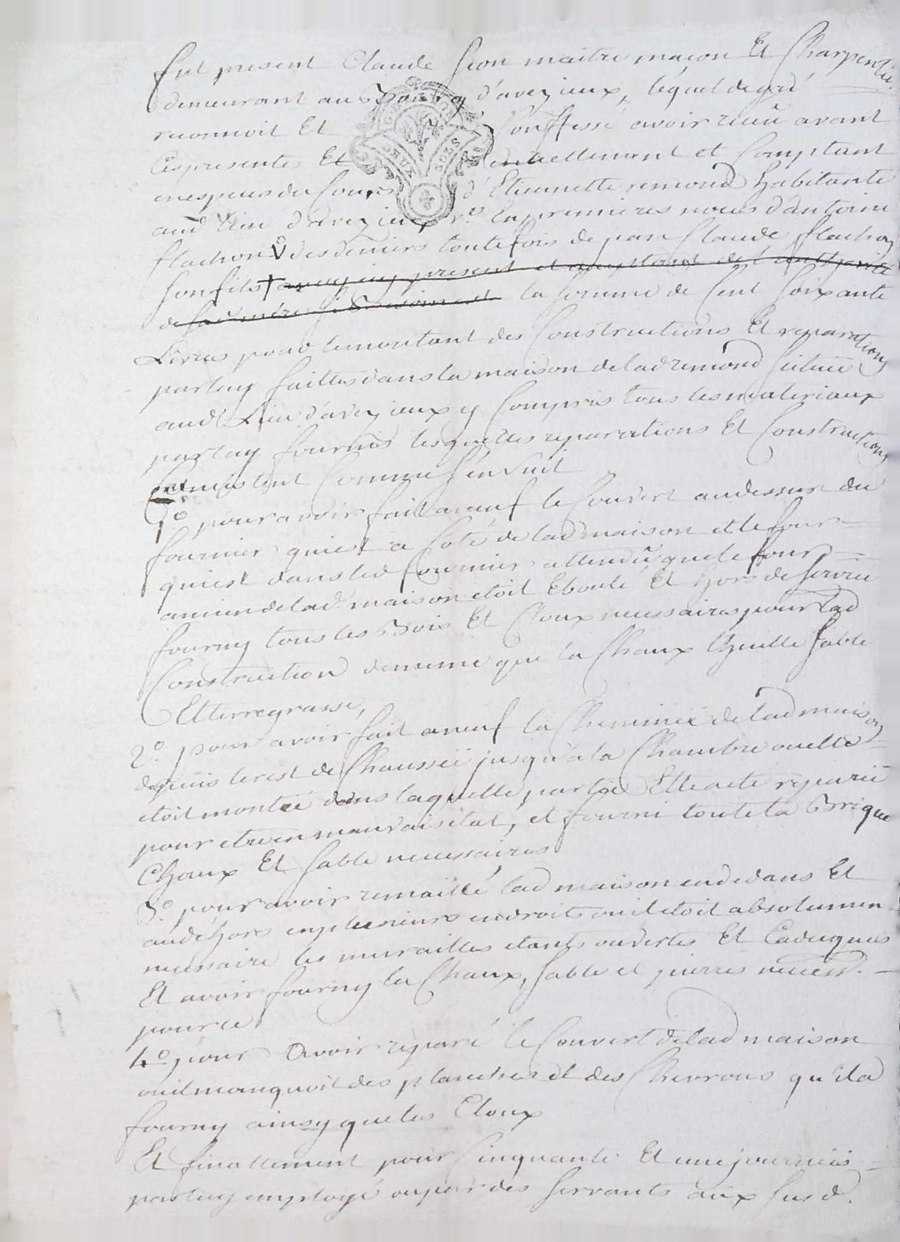 fut present Claude Sion maitre maçon Et Charpentier
demeurant au Bourg d'aveizieux, lequel de gré
reconnoit Et Confesse avoir reçu avant
Cespresentes Et reellement et Comptant
en espèces de Cours d'Etiennette remond habitante
aud lieu d'aveizieux Ve en premieres noces d'antoine
flachon des deniers toutefois de jean Claude flachon
son fils present et acceptant de
de la somme de Cent Soixante
Livres pour le montant des Constructions Et reparations
par luy faittes dans la maison de lad remond Scituée
aud Lieu d'aveizieux y Compris tous les materiaux
par luy fournis lesquelles reparations Et Constructions
Consistent Comme s'en suit
1o pour avoir fait a neuf le Couvert au dessus du
fournier qui est a Coté de lad maison et le four
qui est dans led fournier attendu que le four
ancien de lad maison etoit Eboulé Et hors de service
fourny tous les Bois Et Cloux necessaires pour lad
Construction de meme que la Chaux thuille Sable
Et terre grasse,
2o pour avoir fait a neuf la Cheminée de lad maison
depuis le rest de Chaussée jusqu'a la Chambre ou elle
etoit montée dans laquelle partie Elle a eté reparée
pour etre en mauvais etat, et fourni toute la Brique
Chaux Et Sable necessaires
3o pour avoir remaillé lad maison en dedans Et
au dehors en plusieurs endroits ou il etoit absolumen
necessaire les murailles etants ouvertes Et Caduques
Et avoir fourny la Chaux, Sable et pierres necess.
pour ce
4o pour avoir reparé le Couvert de lad maison
ou il manquoit des planches et des Chevrons qu'il a
fourny ainsy que les Cloux
Et finallement pour Cinquante Et une journées
par luy employé ou par des servants aux Susd.